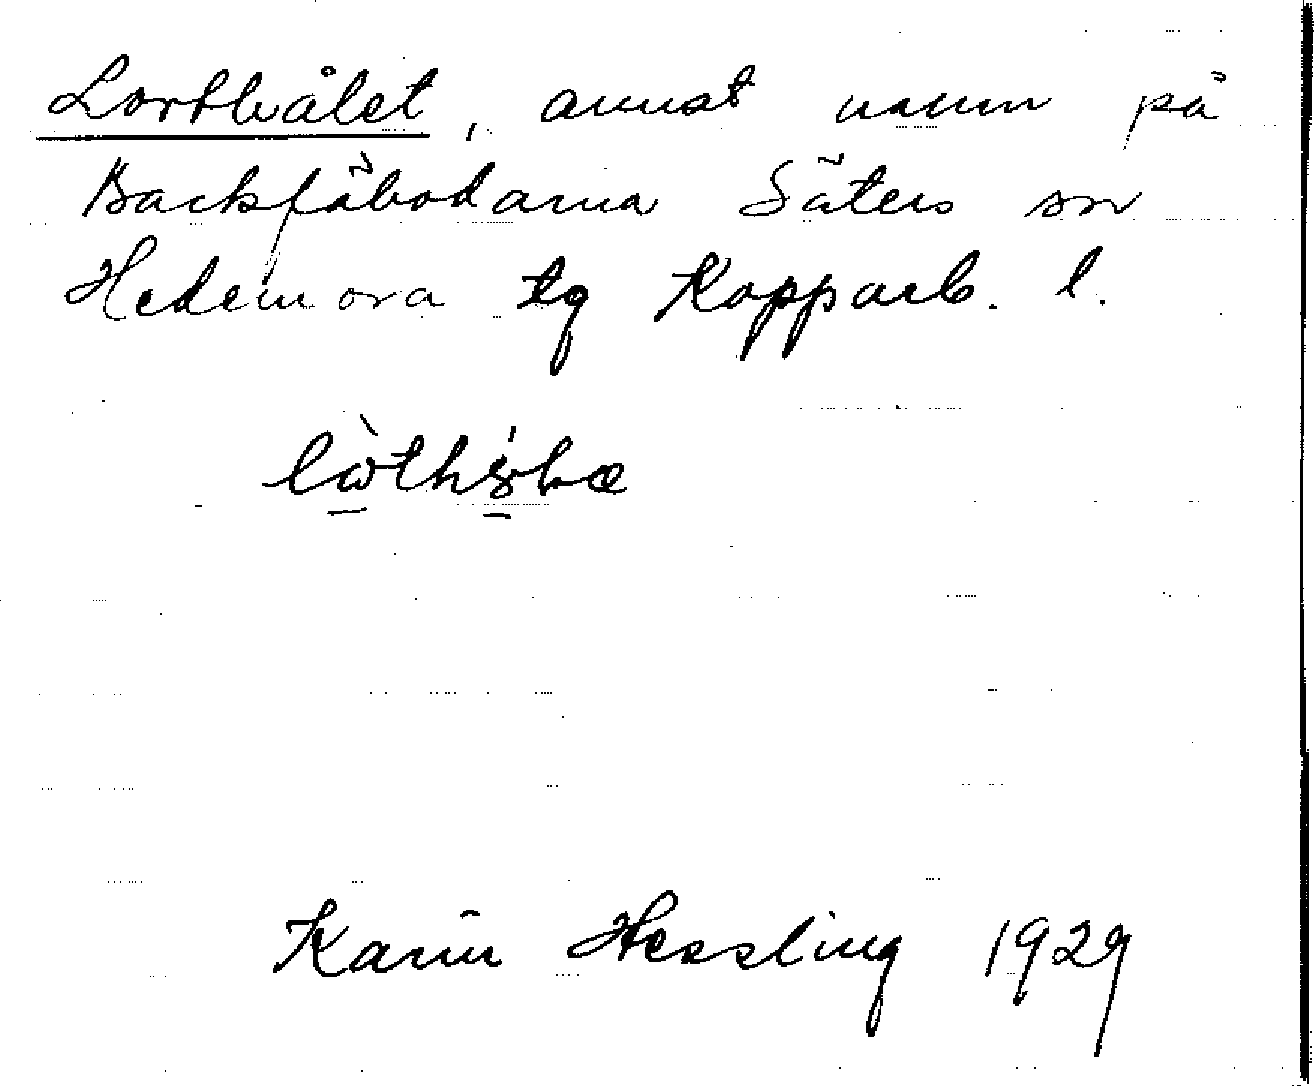 Lorthålet, annat namn på
Backfäbodarna Säters sn
Hedemora tg Kopparb. l.
Karin Hessling 1929